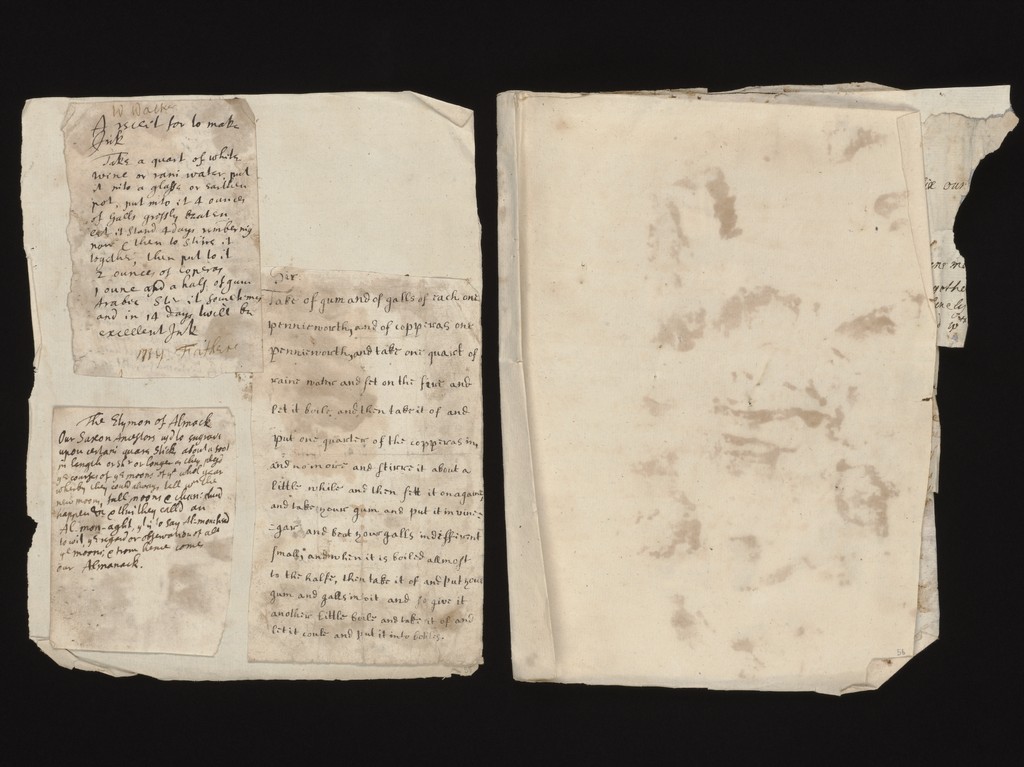 W Walke
A receit for to make
Ink
Take a quart of white
wine or rani water, put
it into a glasse or earthen
pot, put into it 4 ounces
of Galls grossly beaten
let it stand 4 days
now & then to stire it
together, then put to it
2 ounces of Coperas
1 oune and a half of gum
Arabic Stir it sometimes
and in 14 days twill be
excellent Ink
The Etymon of Almack
Our Saxon Ancestors us'd to engrave
upon certain square sticks about a foot
in length or shr or longer as they pleas'd
ye courses of ye moons of ye whole year
wherby they could always tell wn the
new moons, full moons & changes should
happen & this they call'd an
Al-mon-aght, yt is to say Al-mon-heed
to wit ye regard or observation of all
ye moons, & from hence comes
our Almanack.
Sir.
Take of gum and of galls of each one
pennieworth, and of copperas one
pennieworth, and take one quart of
raine water and set on the fire and
let it boile, and then take it of and
put one quarter of the copperas in,
and no more and stirre it about a
little while and then sett it on againe
and take your gum and put it in vine-
-gar and beat your galls indifferent
small, and when it is boiled allmost
to the halfe, then take it of and put your
gum and galls in it and so give it
another little boile and take it of and
let it coule and put it into botles.
our
56